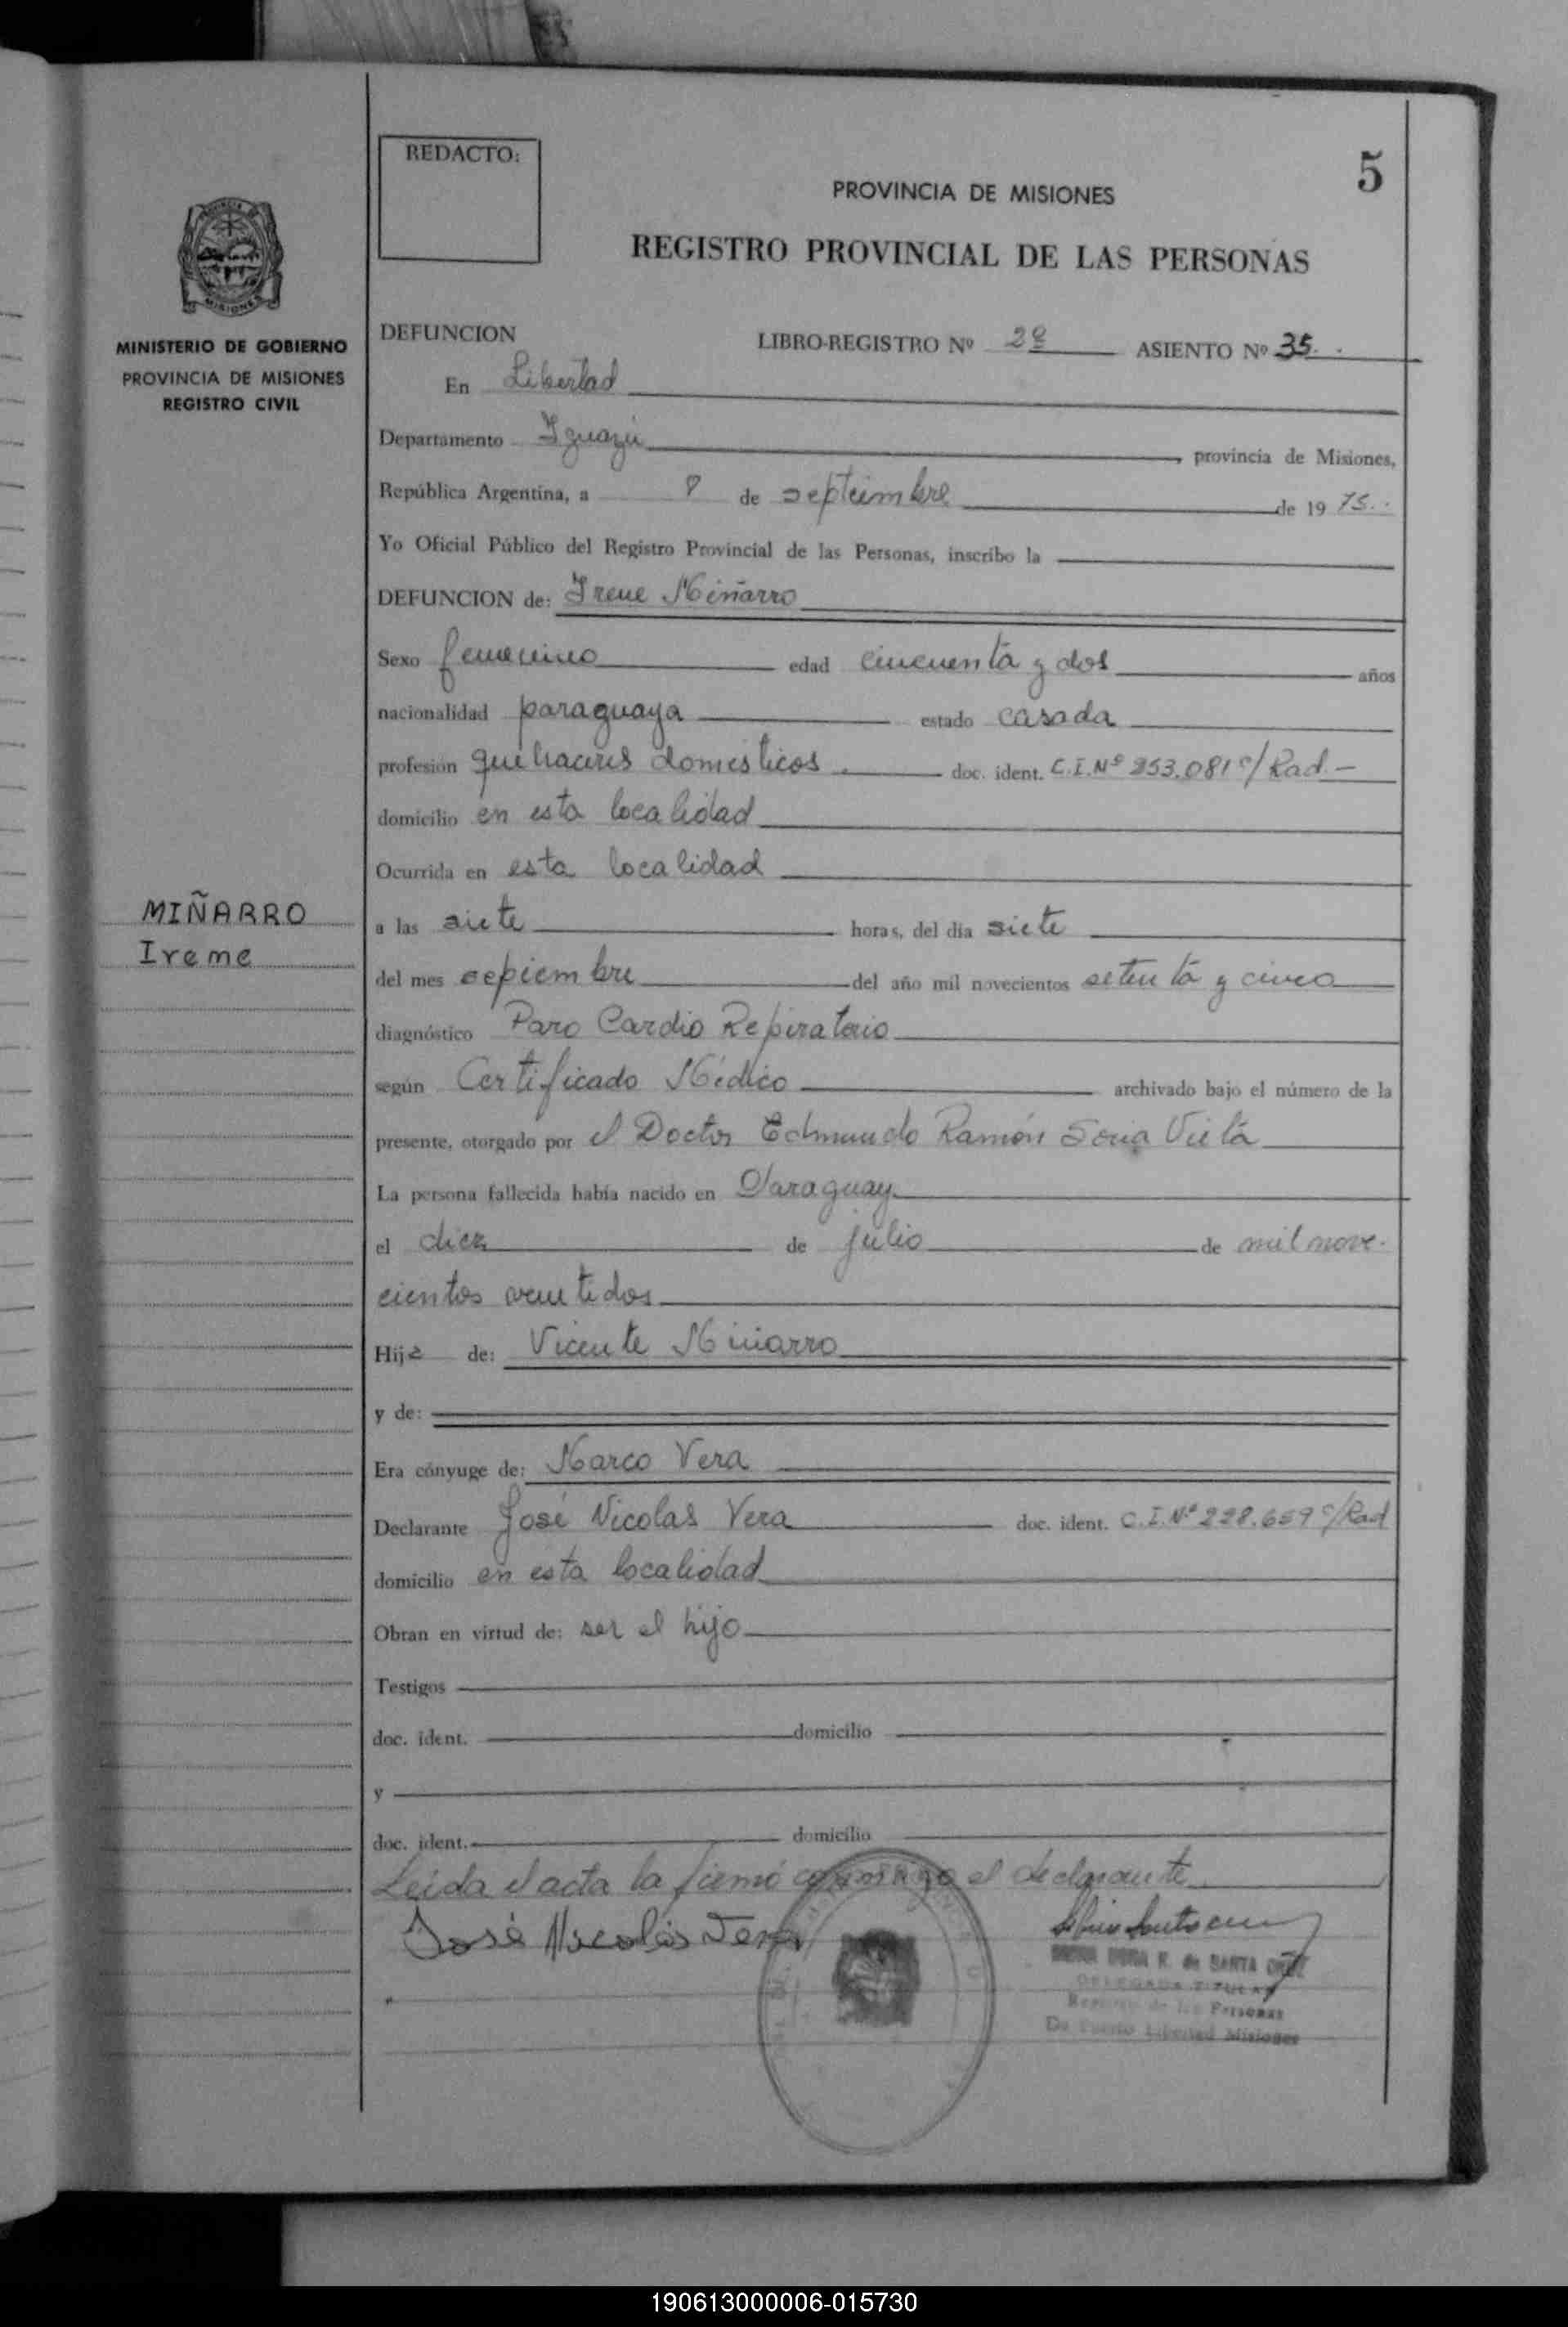 REDACTO:
5
PROVINCIA DE MISIONES
REGISTRO PROVINCIAL DE LAS PERSONAS
MINISTERIO DE GOBIERNO
PROVINCIA DE MISIONES
REGISTRO CIVIL
MIÑARRO
Irene
DEFUNCION LIBRO-REGISTRO Nº 2º ASIENTO Nº 35
En Libertad
Departamento Iguazú, provincia de Misiones,
República Argentina, a 8 de septiembre de 1975
Yo Oficial Público del Registro Provincial de las Personas, inscribo la
DEFUNCION de: Irene Miñarro
Sexo femenino edad cincuenta y dos años
nacionalidad paraguaya estado casada
profesión quehaceres domésticos. doc. ident. C.I.Nº 253.081 c/Rad.-
domicilio en esta localidad
Ocurrida en esta localidad
a las siete horas, del día siete
del mes sepiembre del año mil novecientos setenta y cinco
diagnóstico Paro Cardio Repiratorio
según Certificado Médico archivado bajo el número de la
presente, otorgado por el Doctor Edmundo Ramón Soria Vieta
La persona fallecida había nacido en Paraguay
el diez de julio de mil nove-
cientos veintidos
Hija de: Vicente Miñarro
y de:
Era cónyuge de: Marco Vera
Declarante José Nicolas Vera doc. ident. C.I.Nº 228.659 c/Rad
domicilio en esta localidad
Obran en virtud de: ser el hijo
Testigos
doc. ident. domicilio
y
doc. ident. domicilio
Leida el acta la firmó conmigo el declarante
José Nicolás Vera
DORA R. de SANTA CRUZ
DELEGADA TITULAR
Registro de las Personas
De Puerto Libertad Misiones
190613000006-015730